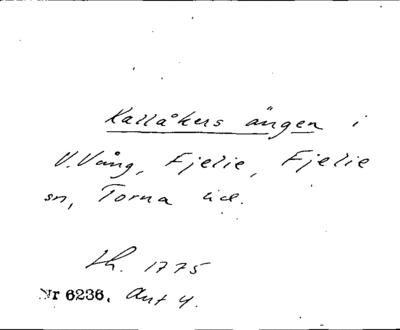 Kallåkers ängen i
V. Vång, Fjelie, Fjelie
sn, Torna hd.
Lh. 1775
Nr 6236, Ant 4.